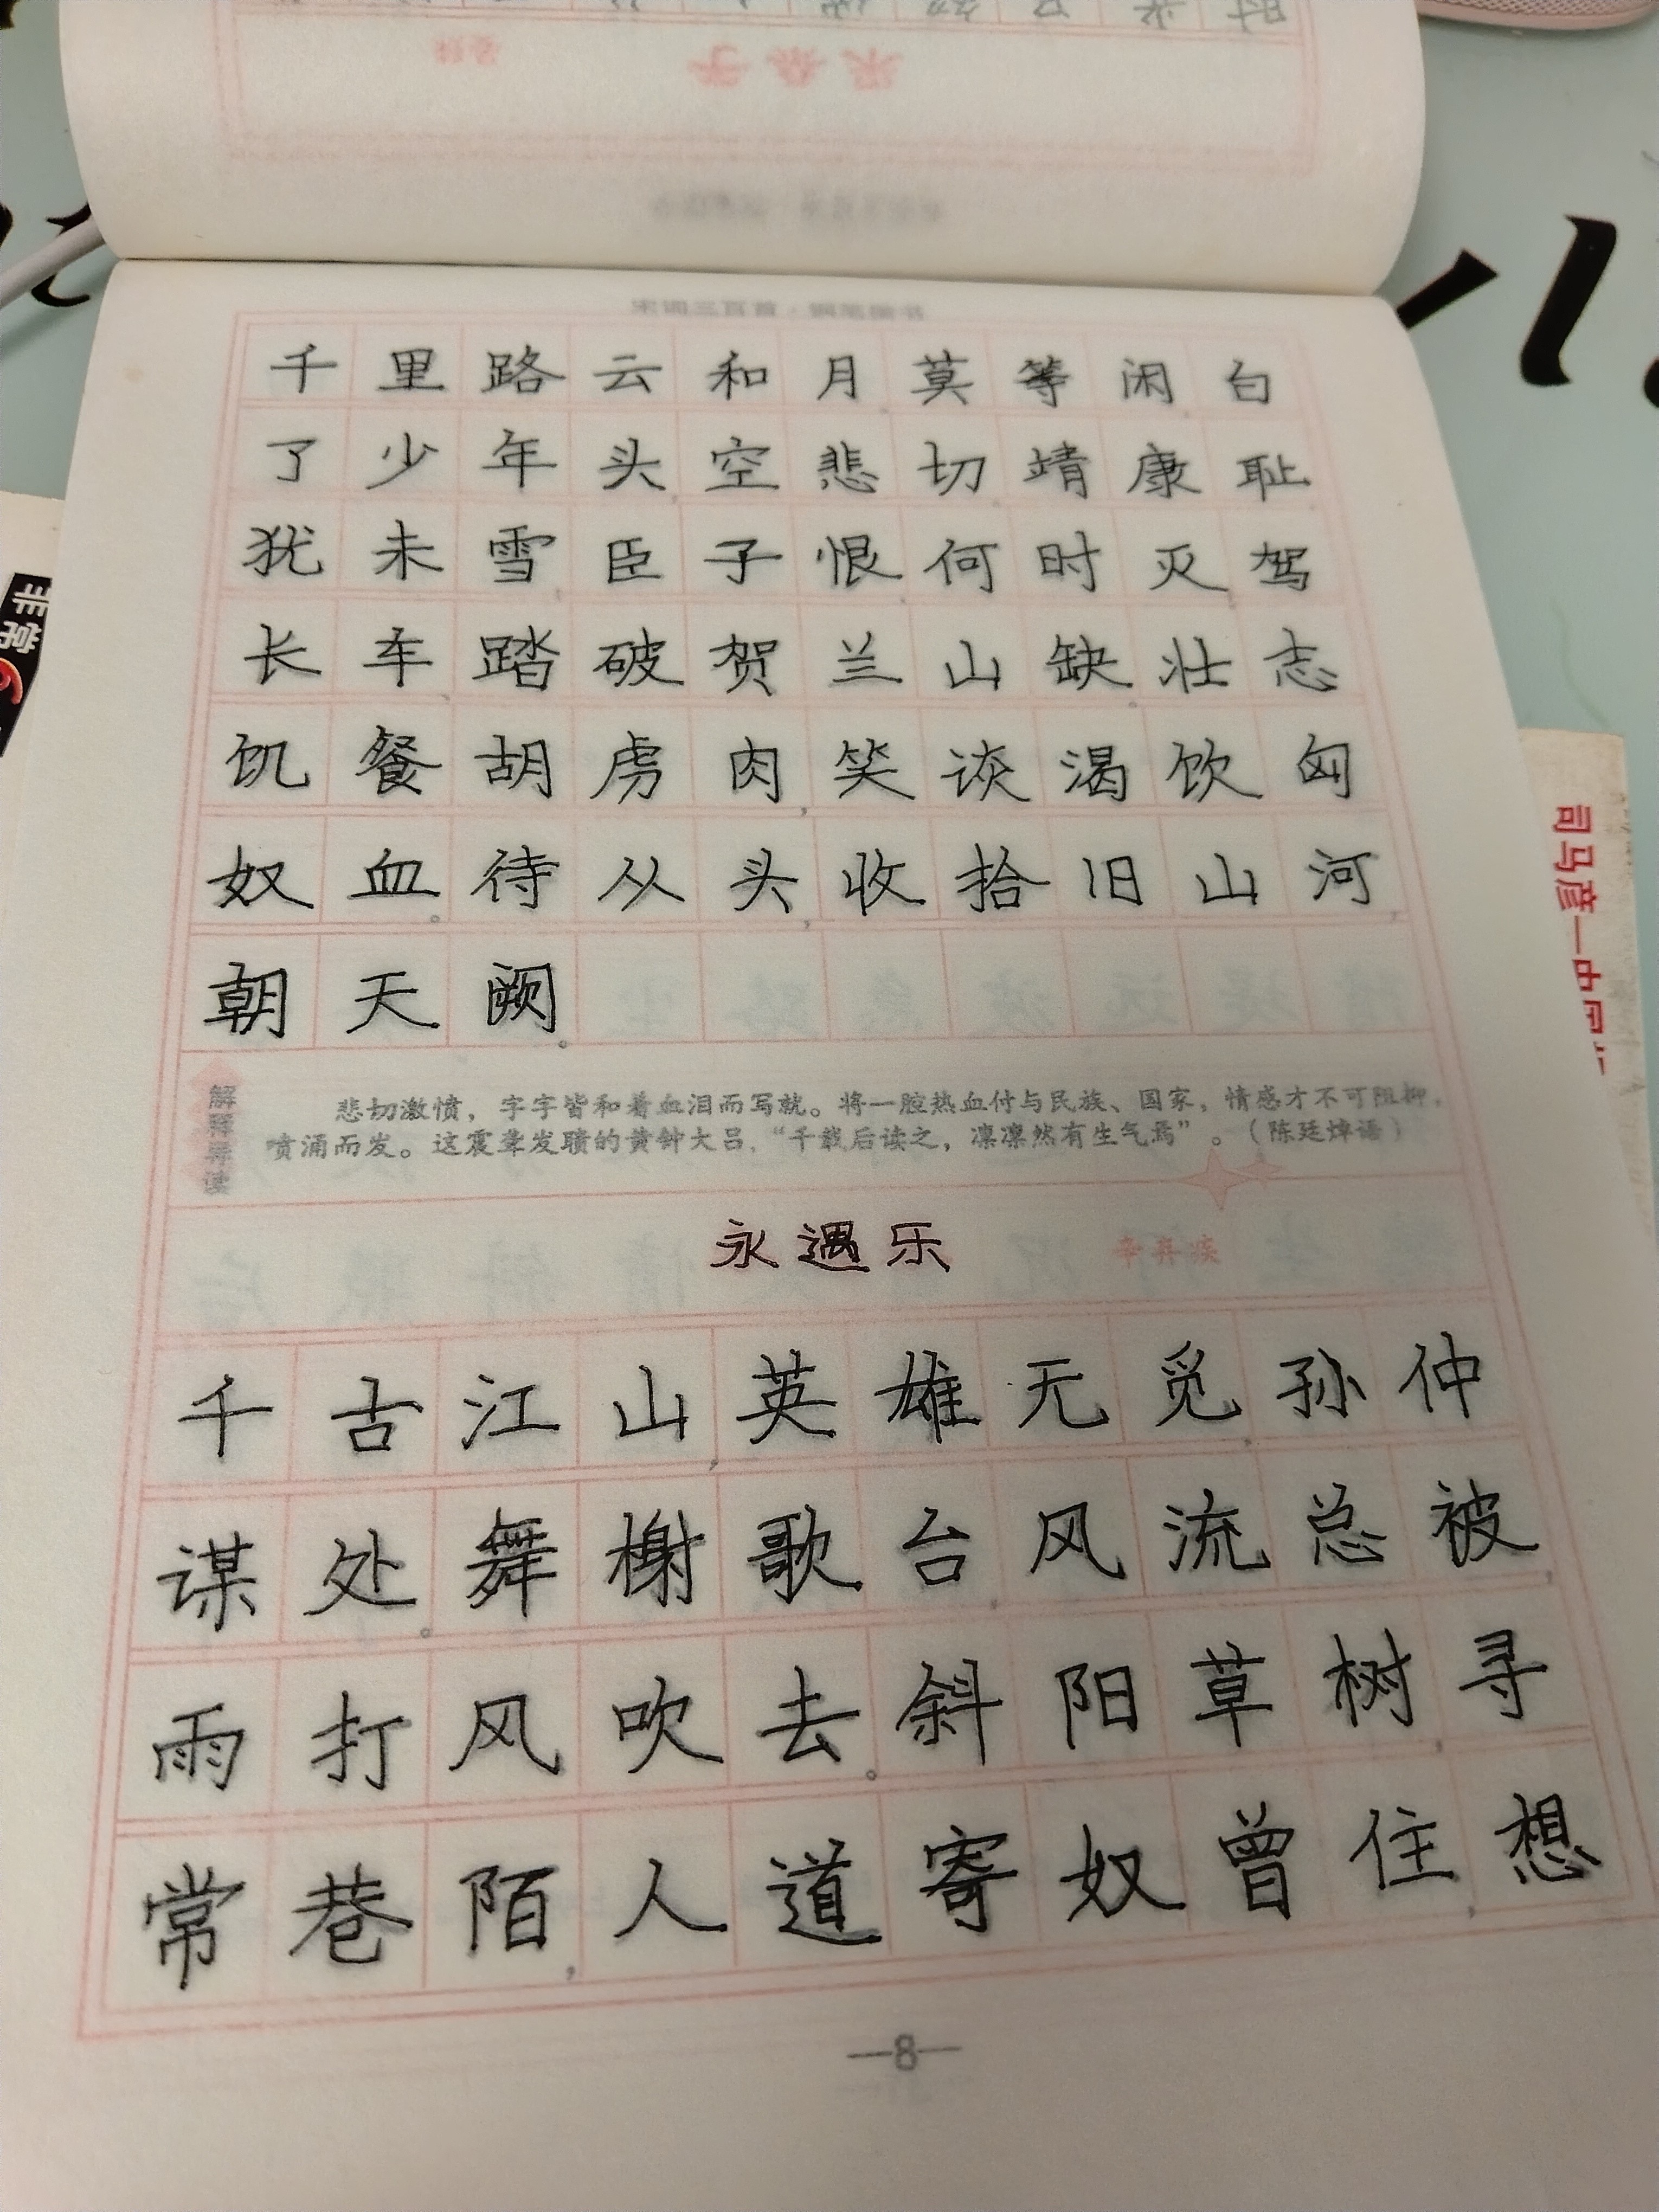 宋词三百首·钢笔楷书
千里路云和月，莫等闲，白
了少年头，空悲切。靖康耻，
犹未雪；臣子恨，何时灭？驾
长车、踏破贺兰山缺。壮志
饥餐胡虏肉，笑谈渴饮匈
奴血。待从头，收拾旧山河，
朝天阙。
解释导读
悲切激愤，字字皆和着血泪而写就。将一腔热血付与民族、国家，情感才不可阻抑，
喷涌而发。这震聋发聩的黄钟大吕，“千载后读之，凛凛然有生气焉”。（陈廷焯语）
永遇乐
辛弃疾
千古江山，英雄无觅，孙仲
谋处。舞榭歌台，风流总被，
雨打风吹去。斜阳草树，寻
常巷陌，人道寄奴曾住。想
—8—
非常
司马彦